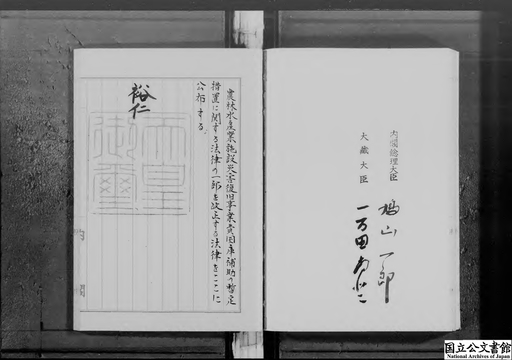 農林水産業施設災害復旧事業費国庫補助の暫定
措置に関する法律の一部を改正する法律をここに
公布する。
裕仁
天皇
御璽
内閣総理大臣
鳩山一郎
大蔵大臣
一万田尚登
国立公文書館
National Archives of Japan